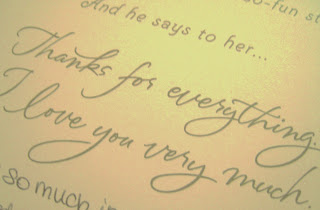 o-fun st
And he says to her...
Thanks for everything.
I love you very much.
so much i